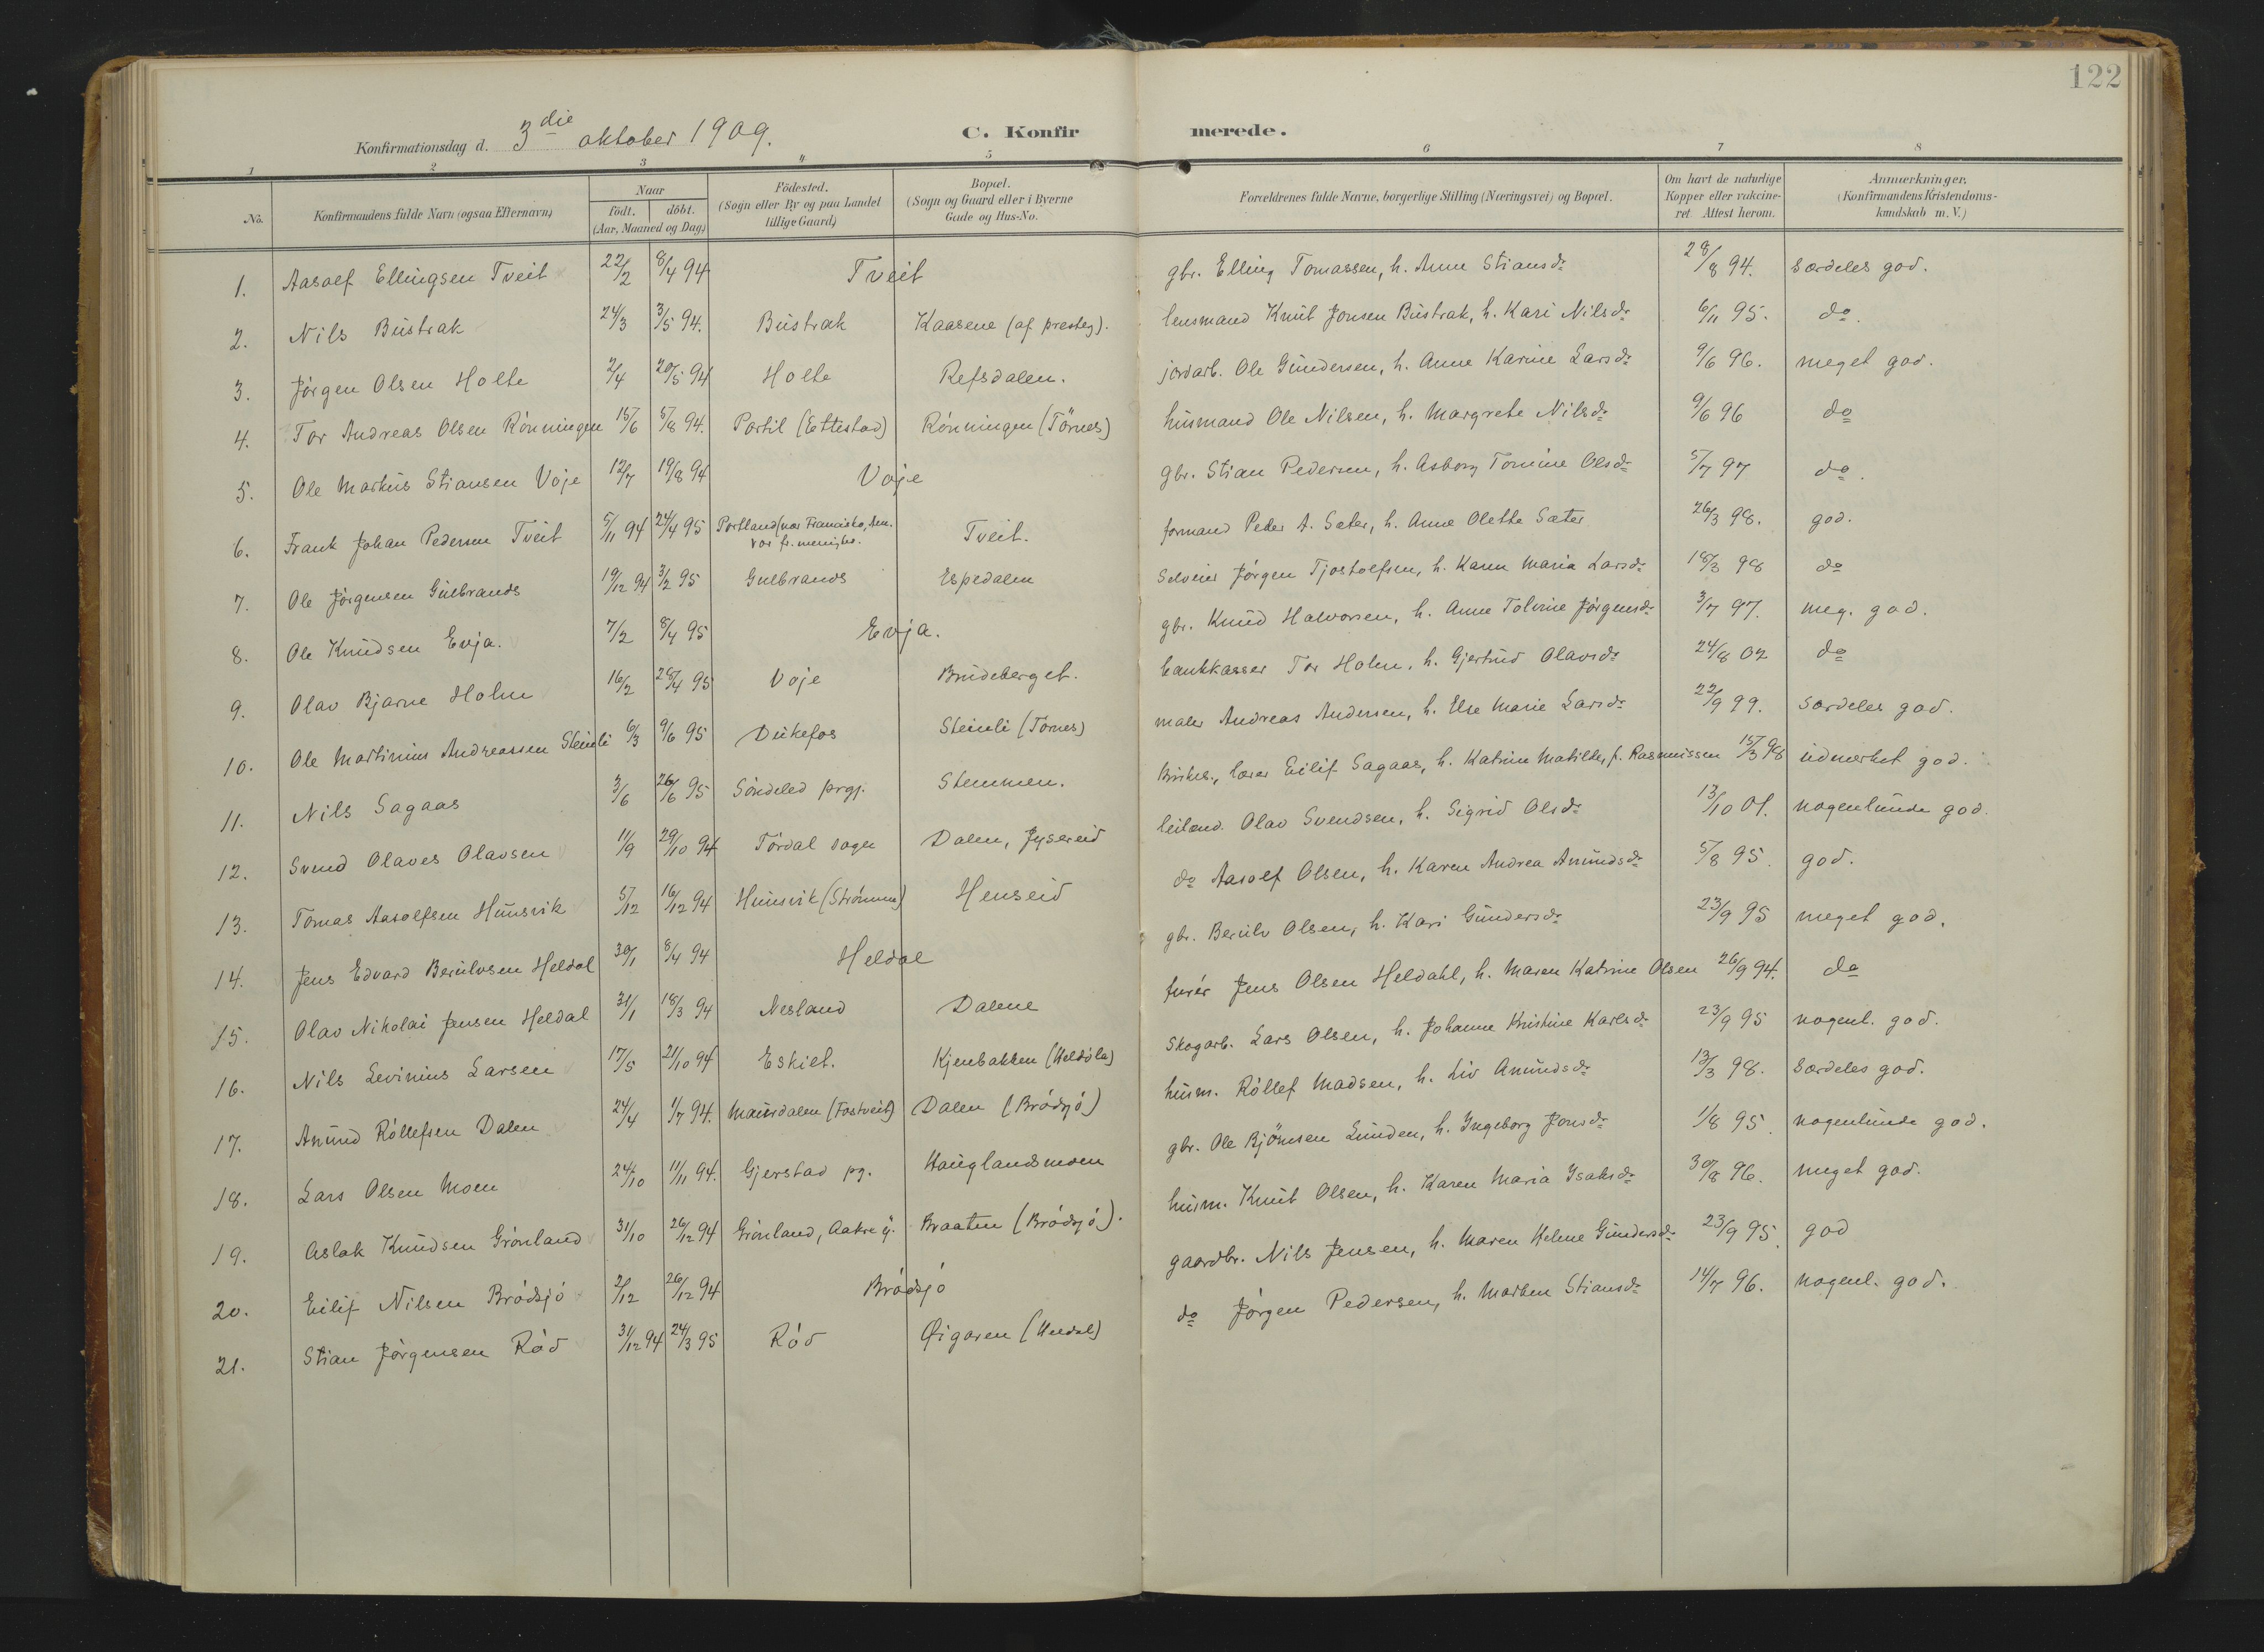 122
Konfirmationsdag d. 3die oktober 1909.
C. Konfir merede.
1 2 3 4 5 6 7 8
No.
Konfirmandens fulde Navn (ogsaa Efternavn)
Naar
födt. döbt.
(Aar, Maaned og Dag)
Födested.
(Sogn eller By og paa Landet
tillige Gaard)
Bopæl.
(Sogn og Gaard eller i Byerne
Gade og Hus-No.
Forældrenes fulde Navne, borgerlige Stilling (Næringsvei) og Bopæl.
Om havt de naturlige
Kopper eller vakcine-
ret. Attest herom.
Anmærkninger.
(Konfirmandens Kristendoms-
kundskab m. V.)
1. Aasolf Ellingsen Tveit 22/2 8/4 94 Tveit gbr. Elling Tomassen, h. Anne Stiansdr 28/8 94. særdeles god.
2. Nils Bustrak 24/3 3/5 94. Bustrak Kaasene (af presteg). lensmand Knut Jonsen Bustrak, h. Kari Nilsdr 6/11 95. do.
3. Jörgen Olsen Holte 2/4 20/5 94 Holte Refsdalen. jordarb. Ole Gundersen, h. Anne Karine Larsdr 9/6 96. meget god.
4. Tor Andreas Olsen Rönningen 15/6 5/8 94. Portil (Ettestad) Rönningen (Törnes) husmand Ole Nilsen, h. Margrete Nilsdr 9/6 96 do
5. Ole Markus Stiansen Voje 12/7 19/8 94 Voje gbr. Stian Pedersen, h. Asborg Tomine Olsdr 5/7 97 do.
6. Frank Johan Pedersen Tveit 5/11 94 24/4 95 Portland (nær Francisko, Am. Tveit. formand Peder A. Sæter, h. Anne Olette Sæter 26/3 98. god.
7. Ole Jörgensen Gulbrands 19/12 94 3/2 95 Gulbrands Espedalen Selveier Jörgen Tjostolfsen, h. Karen Maria Larsdr 18/3 98 do
8. Ole Knudsen Evja. 7/2 8/4 95 Evja. gbr. Knud Halvorsen, h. Anne Tolvine Jörgensdr 3/7 97. meg. god.
9. Olav Bjarne Holm 16/2 28/4 95 Voje Brudeberget. bankkasser Tor Holm, h. Gjertrud Olavsdr 24/8 02 do
10. Ole Martinius Andreassen Steinli 6/3 9/6 95 Dukefos Steinli (Tornes) maler Andreas Andersen, h. Else Marie Larsdr 22/9 99. særdeles god.
11. Nils Sagaas 3/6 26/6 95 Söndeled prgj. Stemmen. kirkes., lærer Eilif Sagaas, h. Katrine Matilde, f. Rasmussen 15/3 98 udmerket god.
12. Svend Olaves Olavsen 11/9 29/10 94 Tördal sogn Dalen, Jysereid leilænd. Olav Svendsen, h. Sigrid Olsdr 13/10 01. nogenlunde god.
13. Tomas Aasolfsen Hunsvik 5/12 16/12 94 Hunsvik (Strömmen) Henseid do Aasolf Olsen, h. Karen Andrea Amundsdr 5/8 95. god.
14. Jens Edvard Berulvsen Heldal 30/1 8/4 94 Heldal gbr. Berulv Olsen, h. Kari Gundersdr 23/9 95 meget god.
15. Olav Nikolai Jensen Heldal 31/1 18/3 94 Nesland Dalene furér Jens Olsen Heldahl, h. Maren Katrine Olsen 26/9 94. do
16. Nils Levinius Larsen 17/5 21/10 94 Eskilt. Kjenbakken (Heldöla) Skogarb. Lars Olsen, h. Johanne Kristine Karlsdr 23/9 95 nogenl. god.
17. Anund Röllefsen Dalen 24/4 1/7 94. Mausdalen (Fostveit) Dalen (Brödsjö) husm. Röllef Madsen, h. Liv Anundsdr 13/3 98. særdeles god.
18. Lars Olsen Moen 24/10 11/11 94. Gjerstad pg. Hauglandsmoen gbr. Ole Björnsen Lunden, h. Ingeborg Jonsdr 1/8 95. nogenlunde god.
19. Aslak Knudsen Grönland 31/10 26/12 94 Grönland, Aakre y. Braaten (Brödsjö). husm. Knut Olsen, h. Karen Maria Isaksdr 30/8 96. meget god.
20. Eilif Nilsen Brödsjö 2/12 26/12 94 Brödsjö gaardbr. Nils Jensen, h. Maren Helene Gundersdr 23/9 95. god
21. Stian Jörgensen Röd 31/12 94 24/3 95 Röd Øigaren (Heldal) do Jörgen Pedersen, h. Marten Stiansdr 14/7 96. nogenl. god.